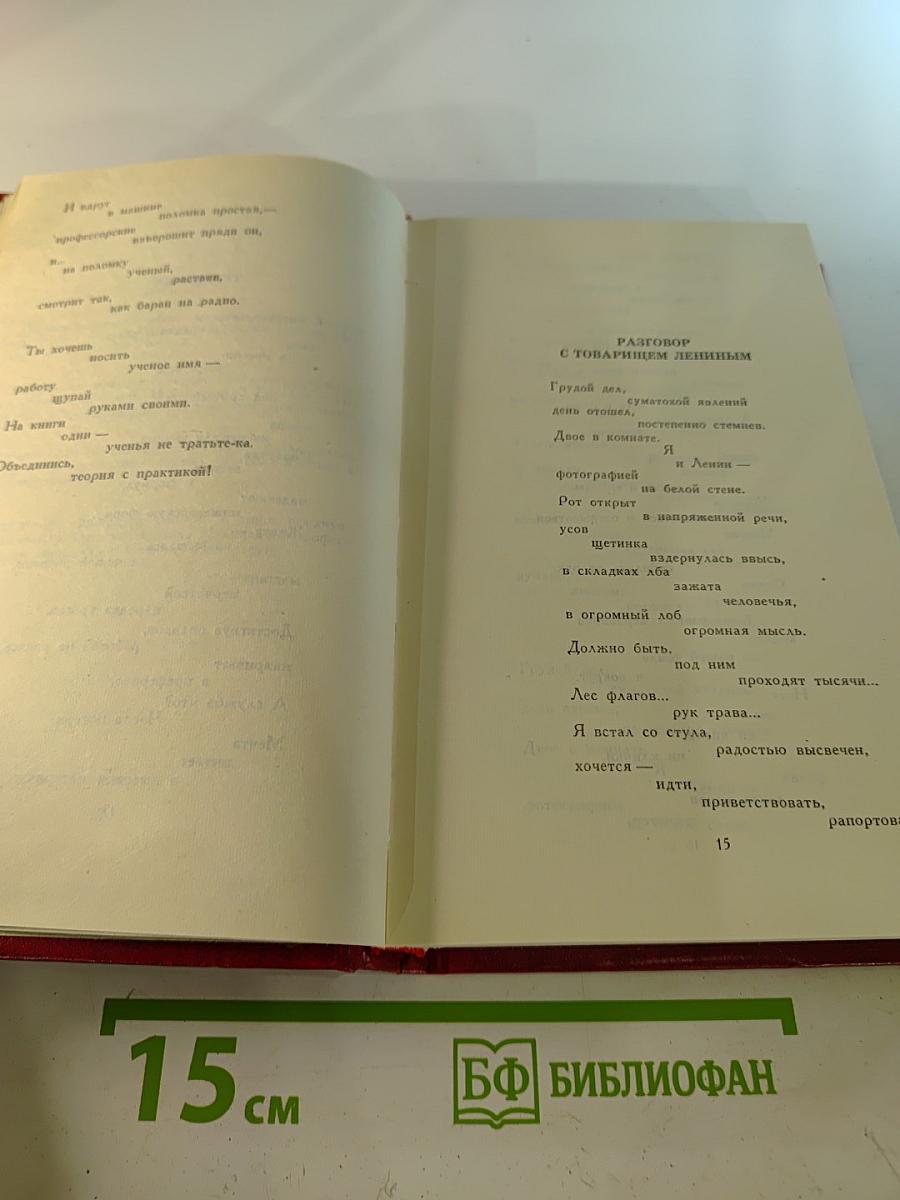 И вдруг
в машине
поломка простая,—
профессорские
взъерошит пряди он,
и...
на поломку
ученый,
растаяв,
смотрит так,
как баран на радио.
Ты хочешь
носить
ученое имя —
работу
щупай
руками своими.
На книги
одни —
ученья не тратьте-ка.
Объединись,
теория с практикой!
РАЗГОВОР
С ТОВАРИЩЕМ ЛЕНИНЫМ
Грудой дел,
суматохой явлений
день отошел,
постепенно стемнев.
Двое в комнате.
Я
и Ленин —
фотографией
на белой стене.
Рот открыт
в напряженной речи,
усов
щетинка
вздернулась ввысь,
в складках лба
зажата
человечья,
в огромный лоб
огромная мысль.
Должно быть,
под ним
проходят тысячи...
Лес флагов...
рук трава...
Я встал со стула,
радостью высвечен,
хочется —
идти,
приветствовать,
рапортова
15
15 см
БФ БИБЛИОФАН